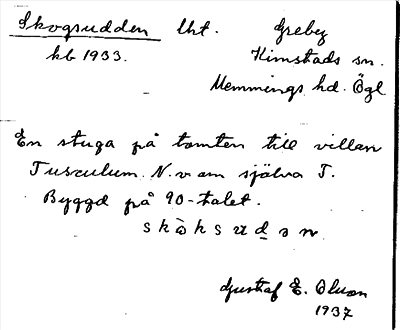 Skogsudden lht. Greby
kb 1933. Kimstads sn.
Memmings hd. Ögl
En stuga på tomten till villan
Tusculum N.v om själva T.
Byggd på 90-talet.
skòksudən
Gustaf E. Olson
1937